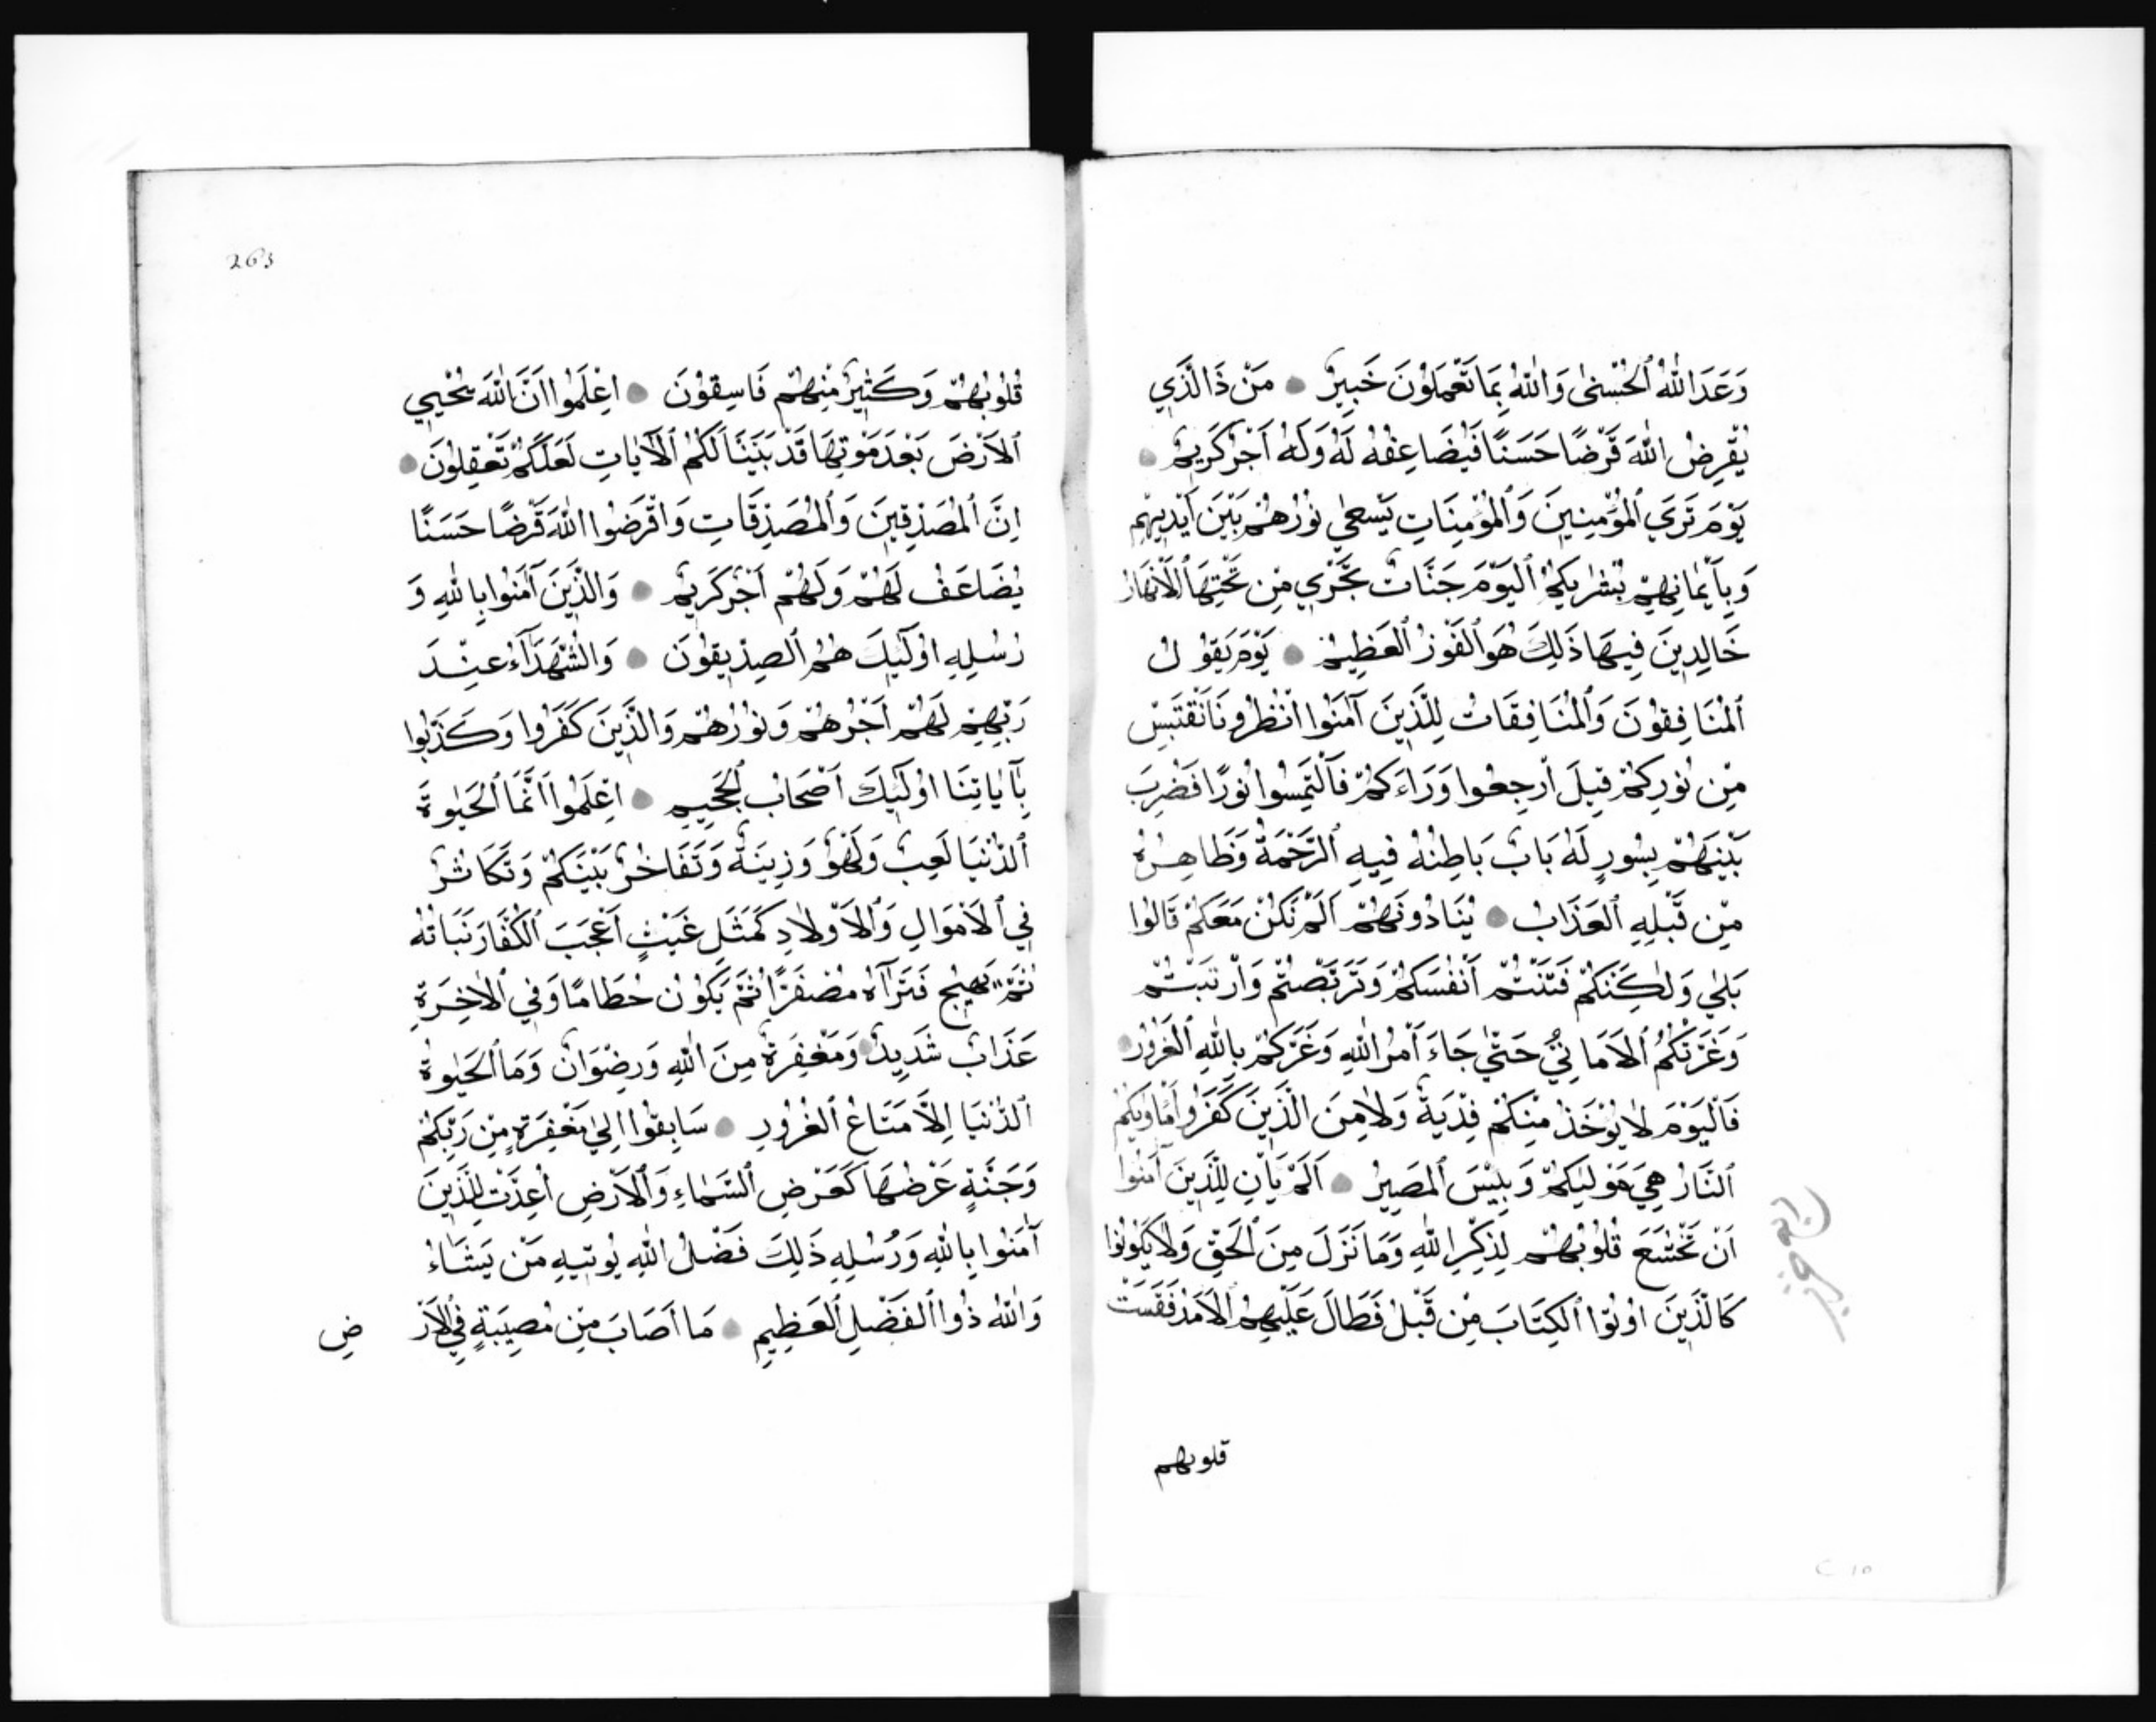 وَعَدَ اللّٰهُ ٱلْحُسْنٰى وَاللّٰهُ بِمَا تَعْمَلُونَ خَبِيرٌ مَنْ ذَا الَّذِي
يُقْرِضُ اللّٰهَ قَرْضًا حَسَنًا فَيُضَاعِفُهُ لَهُ وَلَهُ أَجْرٌ كَرِيمٌ
يَوْمَ تَرَي ٱلْمُؤْمِنِينَ وَٱلْمُؤْمِنَاتِ يَسْعٰي نُورُهُمْ بَيْنَ أَيْدِيهِمْ
وَبِأَيْمَانِهِمْ بُشْرٰيكُمُ ٱلْيَوْمَ جَنَّاتٌ تَجْرِي مِن تَحْتِهَا ٱلْأَنْهَارُ
خَالِدِينَ فِيهَا ذَلِكَ هُوَ ٱلْفَوْزُ ٱلْعَظِيمُ يَوْمَ يَقُولُ
ٱلْمُنَافِقُونَ وَٱلْمُنَافِقَاتُ لِلَّذِينَ آمَنُوا انْظُرُونَا نَقْتَبِسْ
مِن نُورِكُمْ قِيلَ ٱرْجِعُوا وَرَاءَكُمْ فَٱلْتَمِسُوا نُورًا فَضُرِبَ
بَيْنَهُمْ بِسُورٍ لَهُ بَابٌ بَاطِنُهُ فِيهِ ٱلرَّحْمَةُ وَظَاهِرُهُ
مِن قَبْلِهِ ٱلْعَذَابُ يُنَادُونَهُمْ اَلَمْ نَكُنْ مَعَكُمْ قَالُوا
بَلٰي وَلٰكِنَّكُمْ فَتَنْتُمْ أَنْفُسَكُمْ وَتَرَبَّصْتُمْ وَارْتَبْتُمْ
وَغَرَّتْكُمُ ٱلْأَمَانِيُّ حَتّٰي جَاءَ أَمْرُ اللّٰهِ وَغَرَّكُمْ بِاللّٰهِ ٱلْغَرُورُ
فَالْيَوْمَ لَا يُؤْخَذُ مِنكُمْ فِدْيَةٌ وَلَا مِنَ الَّذِينَ كَفَرُوا مَأْوٰيكُمُ
ٱلنَّارُ هِيَ مَوْلٰيكُمْ وَبِئْسَ ٱلْمَصِيرُ اَلَمْ يَأْنِ لِلَّذِينَ آمَنُوا
اَنْ تَخْشَعَ قُلُوبُهُمْ لِذِكْرِ اللّٰهِ وَمَا نَزَلَ مِنَ ٱلْحَقِّ وَلَا يَكُونُوا
كَالَّذِينَ اُوتُوا ٱلْكِتَابَ مِن قَبْلُ فَطَالَ عَلَيْهِمُ ٱلْأَمَدُ فَقَسَتْ
قلوبهم
263
قُلُوبُهُمْ وَكَثِيرٌ مِنْهُمْ فَاسِقُونَ اِعْلَمُوا اَنَّ اللّٰهَ يُحْيِي
ٱلْأَرْضَ بَعْدَ مَوْتِهَا قَدْ بَيَّنَّا لَكُمُ ٱلْآيَاتِ لَعَلَّكُمْ تَعْقِلُونَ
اِنَّ ٱلْمُصَّدِّقِينَ وَٱلْمُصَّدِّقَاتِ وَاَقْرَضُوا اللّٰهَ قَرْضًا حَسَنًا
يُضَاعَفُ لَهُمْ وَلَهُمْ أَجْرٌ كَرِيمٌ وَالَّذِينَ آمَنُوا بِاللّٰهِ وَ
رُسُلِهِ اُولٰئِكَ هُمُ ٱلصِّدِّيقُونَ وَالشُّهَدَاءُ عِنْدَ
رَبِّهِمْ لَهُمْ أَجْرُهُمْ وَنُورُهُمْ وَالَّذِينَ كَفَرُوا وَكَذَّبُوا
بِآيَاتِنَا اُولٰئِكَ أَصْحَابُ ٱلْجَحِيمِ اِعْلَمُوا اَنَّمَا ٱلْحَيٰوةُ
ٱلدُّنْيَا لَعِبٌ وَلَهْوٌ وَزِينَةٌ وَتَفَاخُرٌ بَيْنَكُمْ وَتَكَاثُرٌ
فِي ٱلْأَمْوَالِ وَٱلْأَوْلَادِ كَمَثَلِ غَيْثٍ أَعْجَبَ ٱلْكُفَّارَ نَبَاتُهُ
ثُمَّ يَهِيجُ فَتَرَاهُ مُصْفَرًّا ثُمَّ يَكُونُ حُطَامًا وَفِي ٱلْآخِرَةِ
عَذَابٌ شَدِيدٌ وَمَغْفِرَةٌ مِنَ اللّٰهِ وَرِضْوَانٌ وَمَا ٱلْحَيٰوةُ
ٱلدُّنْيَا اِلَّا مَتَاعُ ٱلْغُرُورِ سَابِقُوا اِلٰي مَغْفِرَةٍ مِنْ رَبِّكُمْ
وَجَنَّةٍ عَرْضُهَا كَعَرْضِ ٱلسَّمَاءِ وَٱلْأَرْضِ اُعِدَّتْ لِلَّذِينَ
آمَنُوا بِاللّٰهِ وَرُسُلِهِ ذَلِكَ فَضْلُ اللّٰهِ يُوتِيهِ مَن يَشَاءُ
وَاللّٰهُ ذُوا ٱلْفَضْلِ ٱلْعَظِيمِ مَا اَصَابَ مِن مُصِيبَةٍ فِي ٱلْأَرْ ضِ